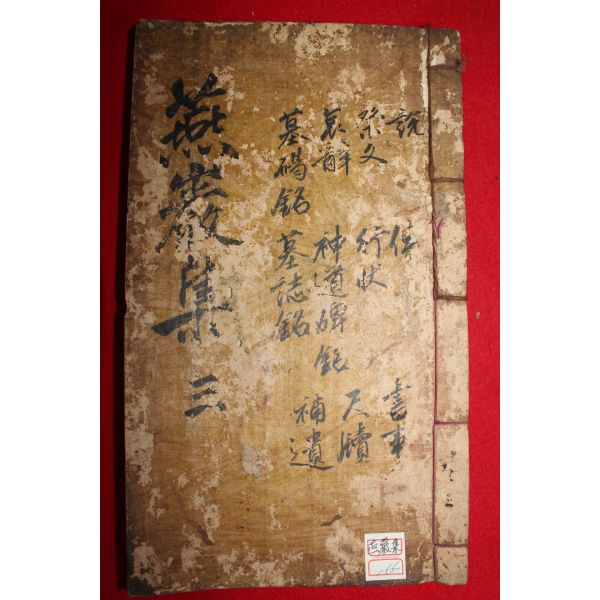 燕巖集 三
說 傳 書事
祭文 行狀 尺牘
哀辭 神道碑銘
墓碣銘 墓誌銘 補遺
燕巖集